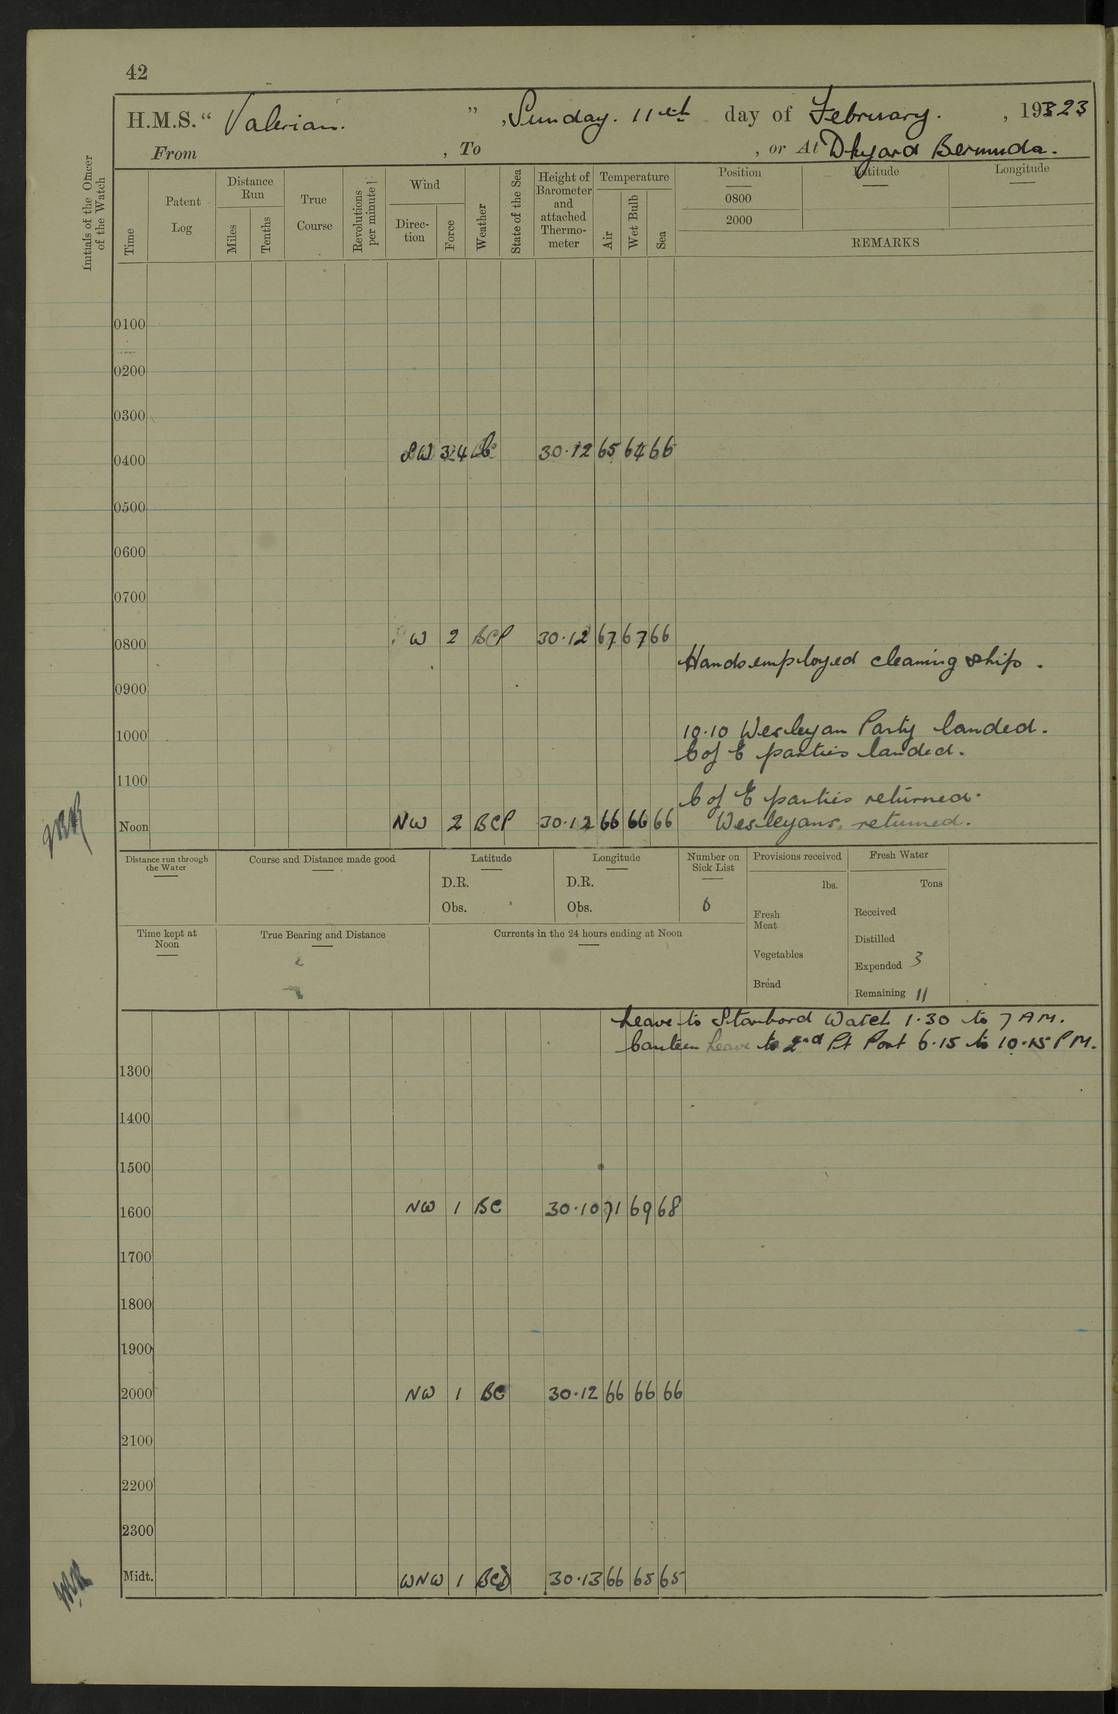 42
H.M.S. “ Valerian. ” , Sunday. 11th day of February. , 1923
From , To , or At Dkyard Bermuda.
Initials of the Officer of the Watch
Time
Patent Log
Distance Run
Miles
Tenths
True Course
Revolutions per minute
Wind
Direction
Force
Weather
State of the Sea
Height of Barometer and attached Thermometer
Temperature
Air
Wet Bulb
Sea
Position Latitude Longitude
0800
2000
REMARKS
0100
0200
0300
0400 SW 3.4 30.12 65 64 66
0500
0600
0700
0800 W 2 BCP 30.12 67 67 66
Hands employed cleaning ship.
0900
10.10 Wesleyan Party landed.
1000
C of E parties landed.
1100
C of E parties returned.
Noon NW 2 BCP 30.12 66 66 66 Wesleyans. returned.
Distance run through the Water
Course and Distance made good
Latitude
D.R.
Obs.
Longitude
D.R.
Obs.
Number on Sick List
6
Provisions received
lbs.
Fresh Meat
Vegetables
Bread
Fresh Water
Tons
Received
Distilled
Expended 3
Remaining 11
Time kept at Noon
True Bearing and Distance
Currents in the 24 hours ending at Noon
Leave to Starbord Watch 1.30 to 7 AM.
Canteen Leave to 2nd Pt Port 6.15 to 10.15 PM.
1300
1400
1500
1600 NW 1 BC 30.10 71 69 68
1700
1800
1900
2000 NW 1 BC 30.12 66 66 66
2100
2200
2300
Midt. WNW 1 30.13 66 65 65